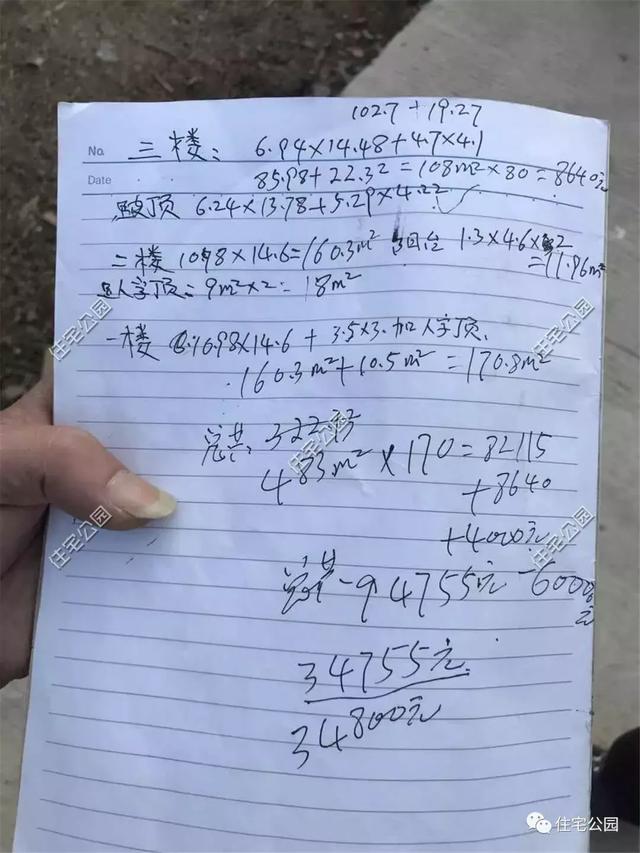 102.7 + 19.27
No. 三楼: 6.94×14.48+4.7×4.1
Date 85.98+22.32=108m²×80=8640元
顶 6.24×13.78+5.29×4.22
二楼 1098×14.6=160.3m² 阳台 1.3×4.6×2
=11.96m²
人字顶: 9m²×2= 18m²
一楼 1098×14.6 + 3.5×3. 加人字顶.
160.3m²+10.5m²=170.8m²
总共: 322.33
483m²×170=82115
+8640
+4000元
总共-94755元-60000
元
34755元
34800元
住宅公园
住宅公园
住宅公园
住宅公园
住宅公园
住宅公园